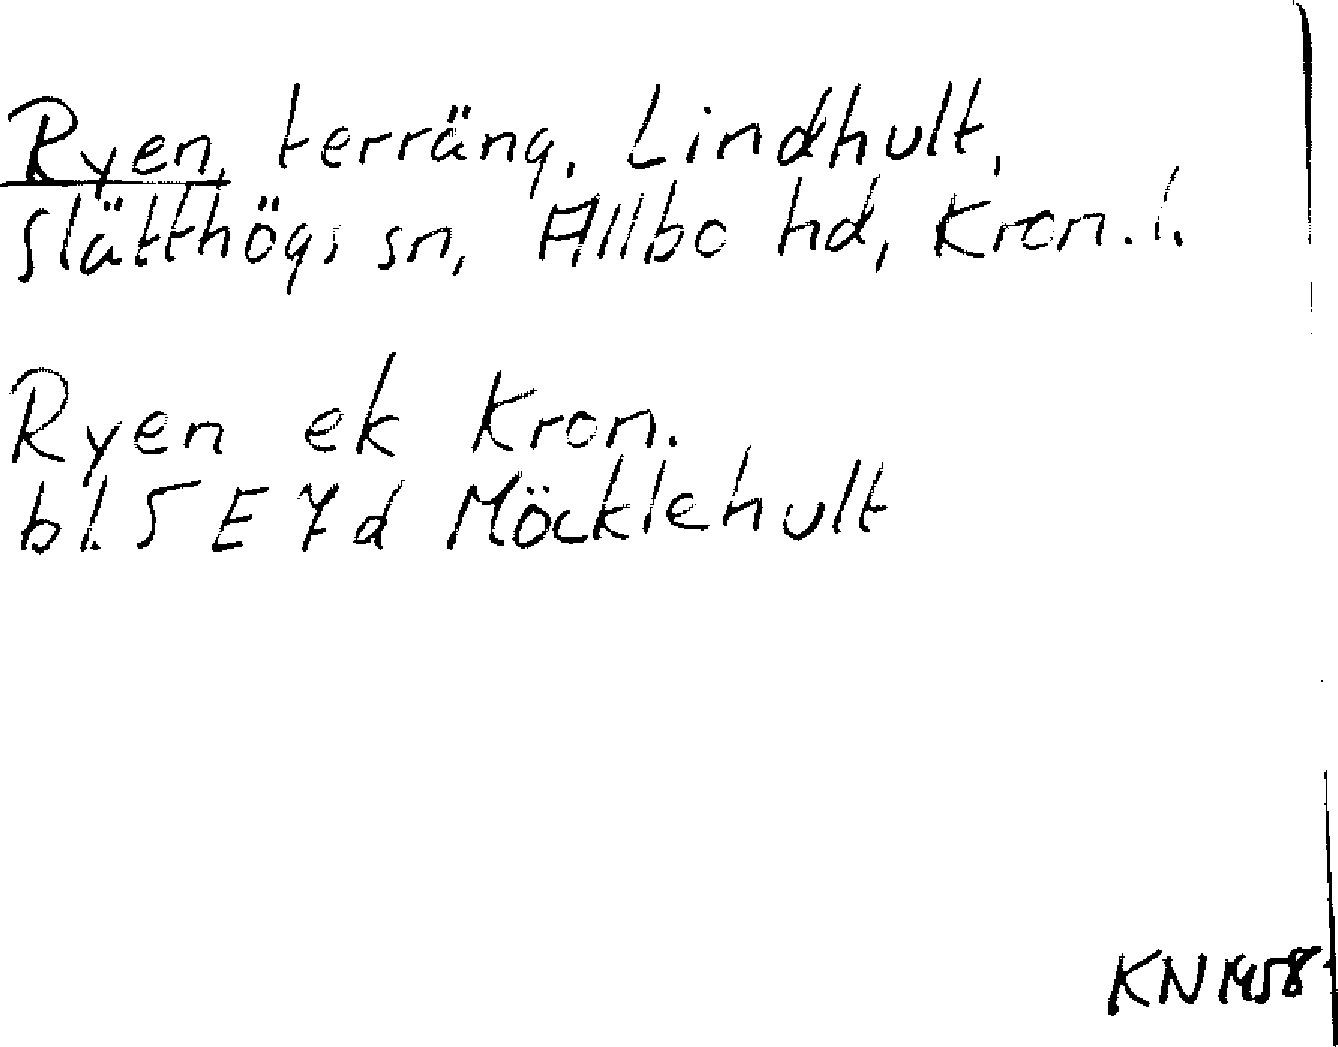 Ryen, terräng, Lindhult,
Slätthögs sn, Allbo hd, Kron. l.
Ryen ek Kron.
bl. 5 E 7d Möcklehult
KN 1958